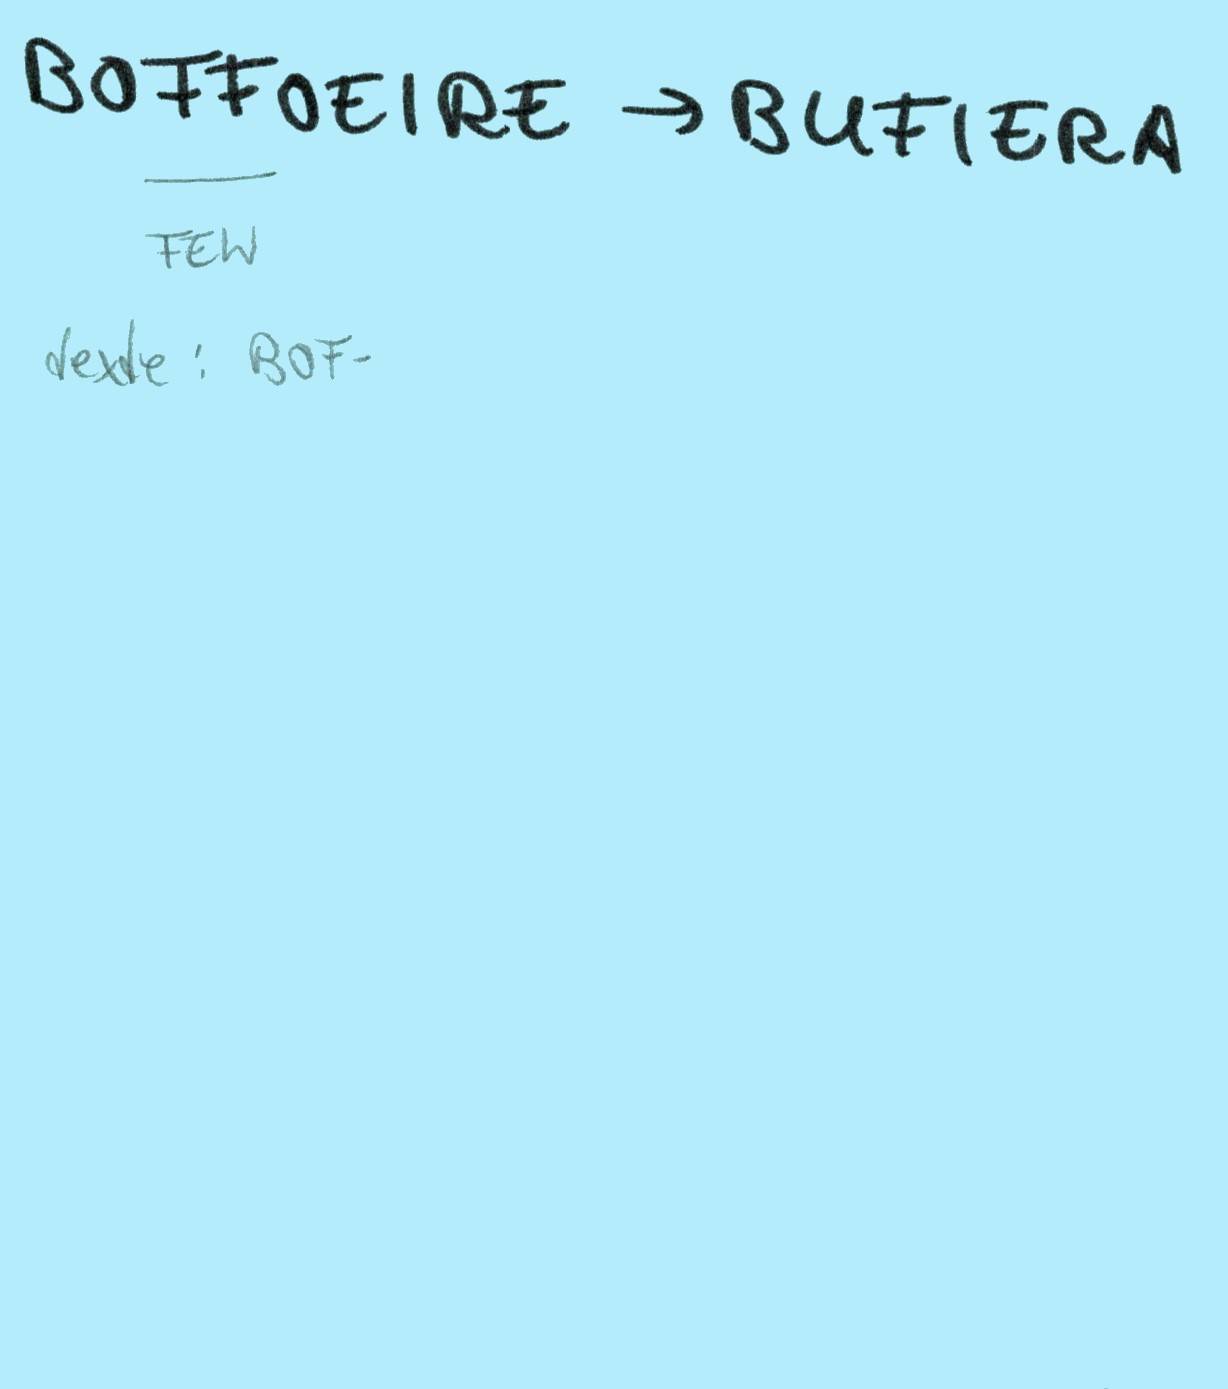 BOFFOEIRE → BUFIERA
FEW
texte : BOF-